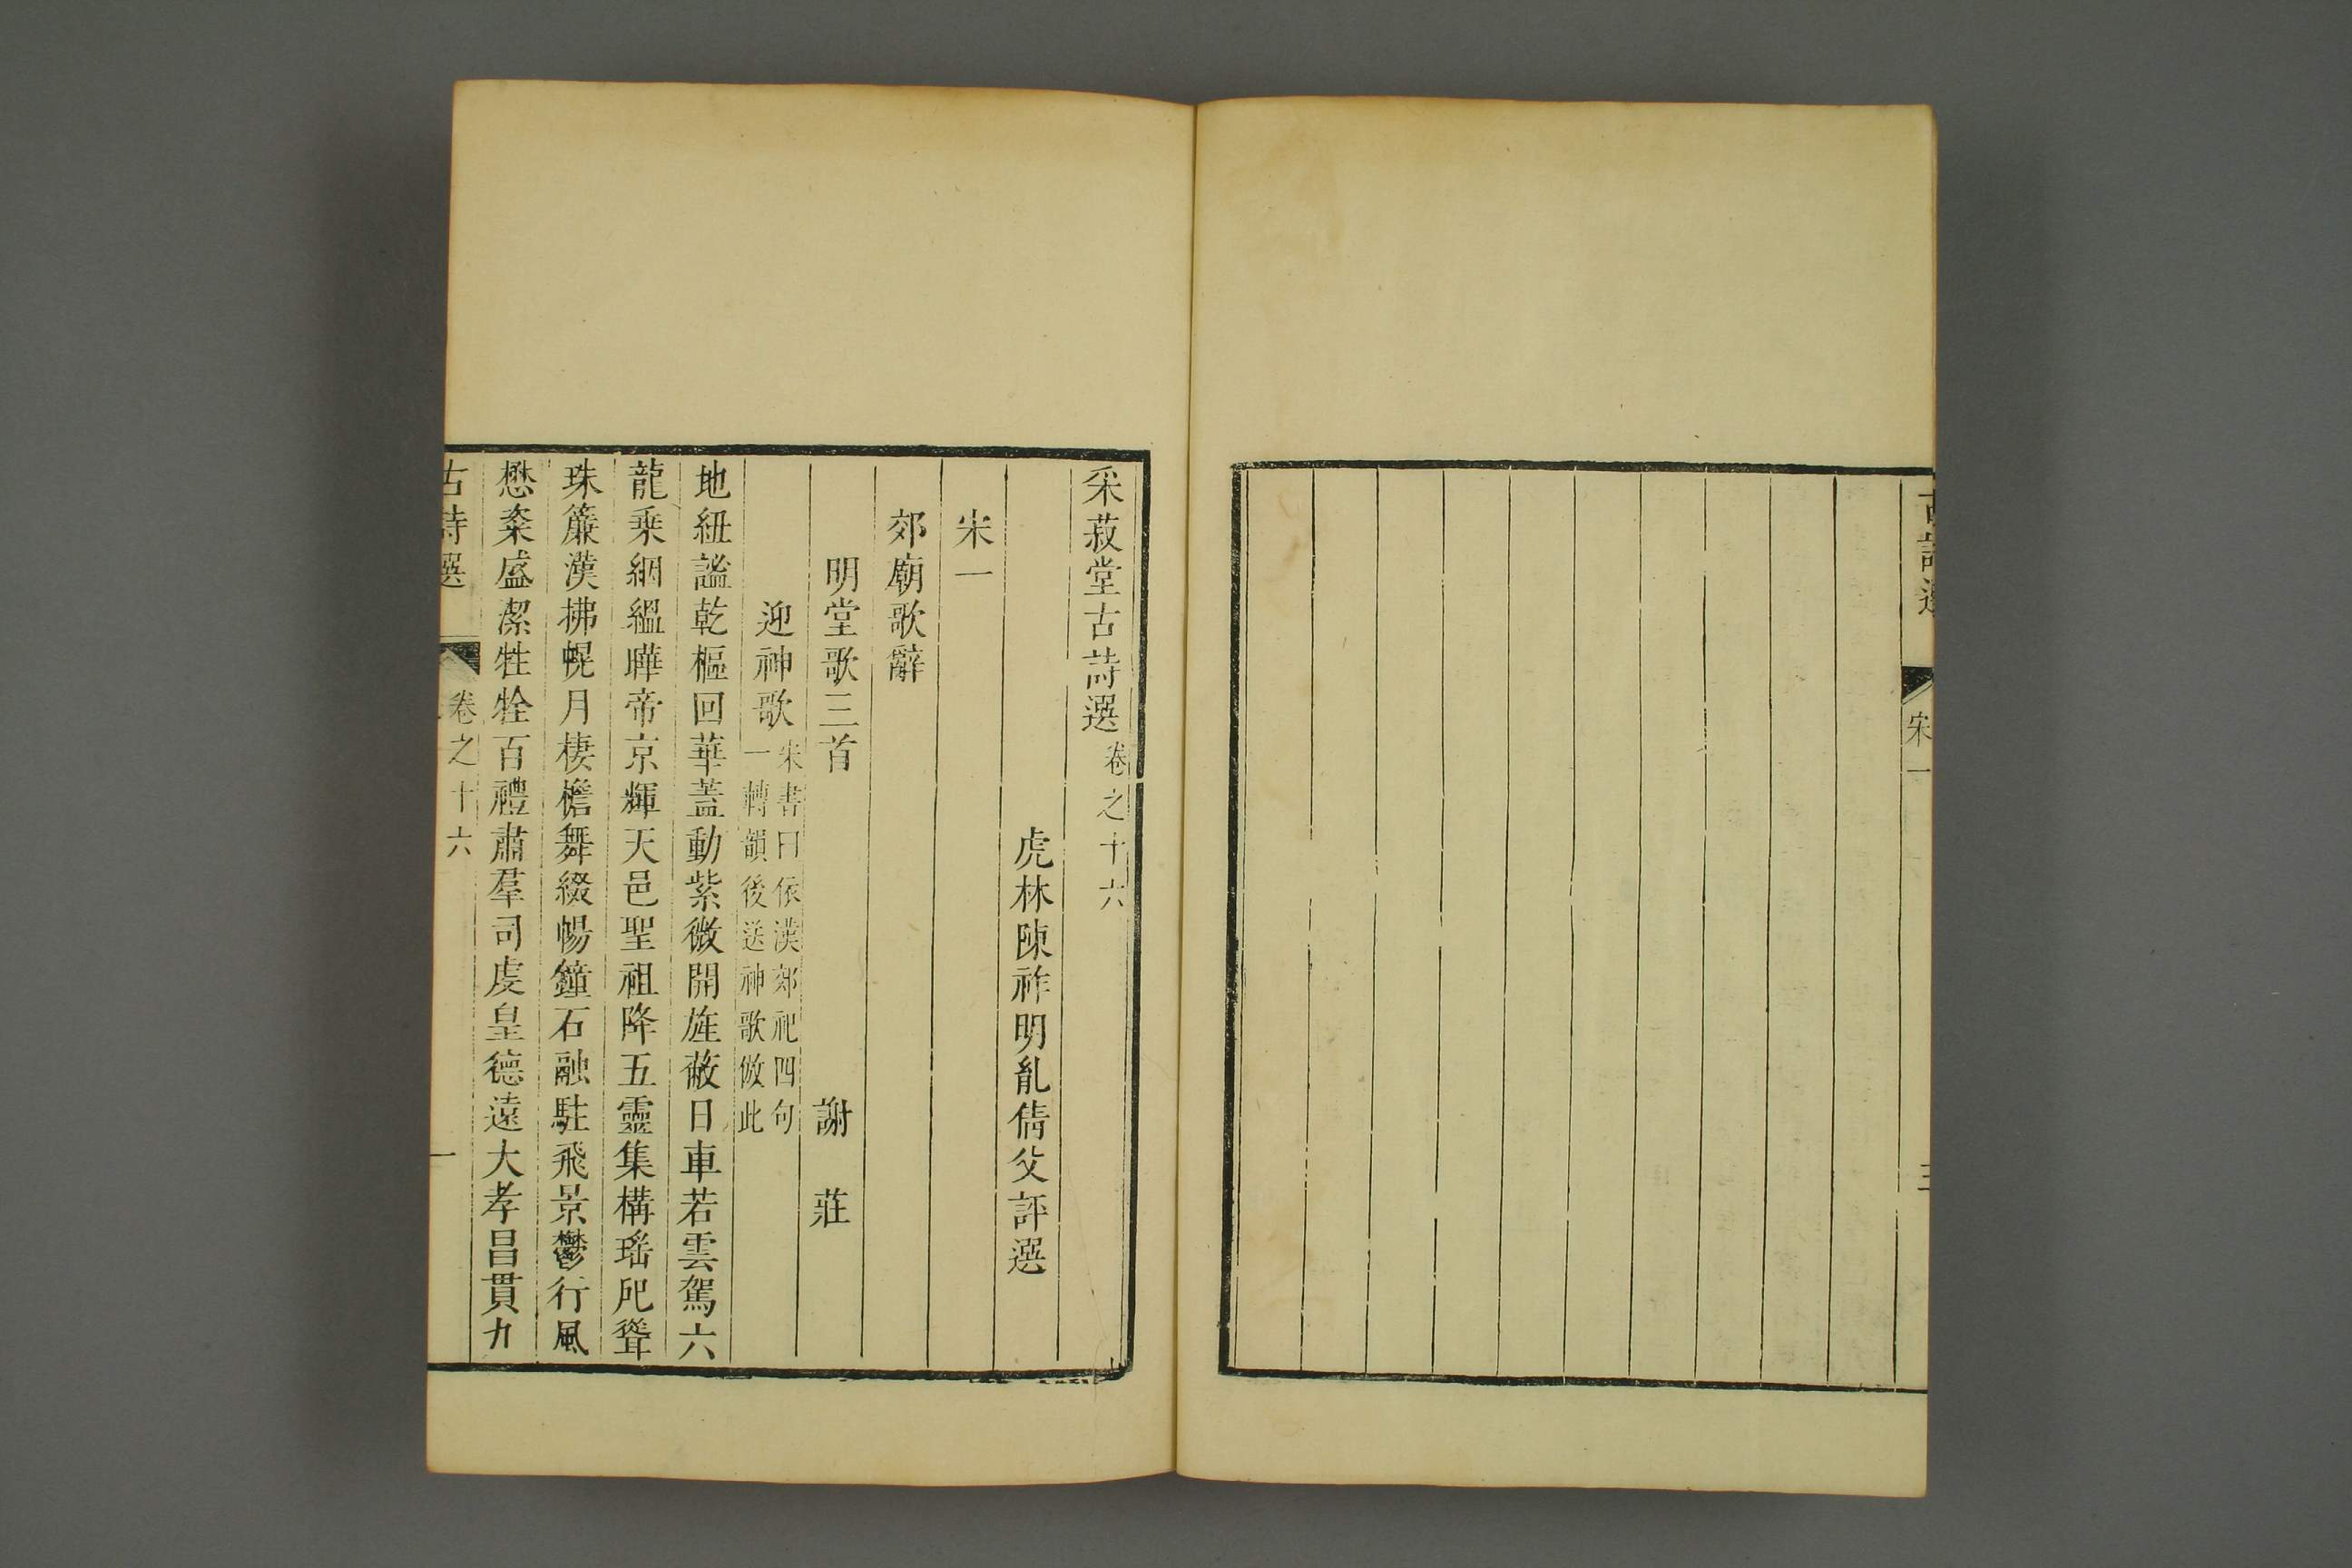 古詩選
宋一
三
采菽堂古詩選卷之十六
虎林陳祚明胤倩父評選
宋一
郊廟歌辭
明堂歌三首
謝莊
迎神歌
宋書曰依漢郊祀四句
一轉韻後送神歌倣此
地紐謐乾樞回華蓋動紫微開旌蔽日車若雲駕六
龍乘絪縕曄帝京輝天邑聖祖降五靈集構瑤戺聳
珠簾漢拂幌月棲檐舞綴暢鐘石融駐飛景鬱行風
懋粢盛潔牲牷百禮肅羣司虔皇德遠大孝昌貫九
古詩選
卷之十六
一